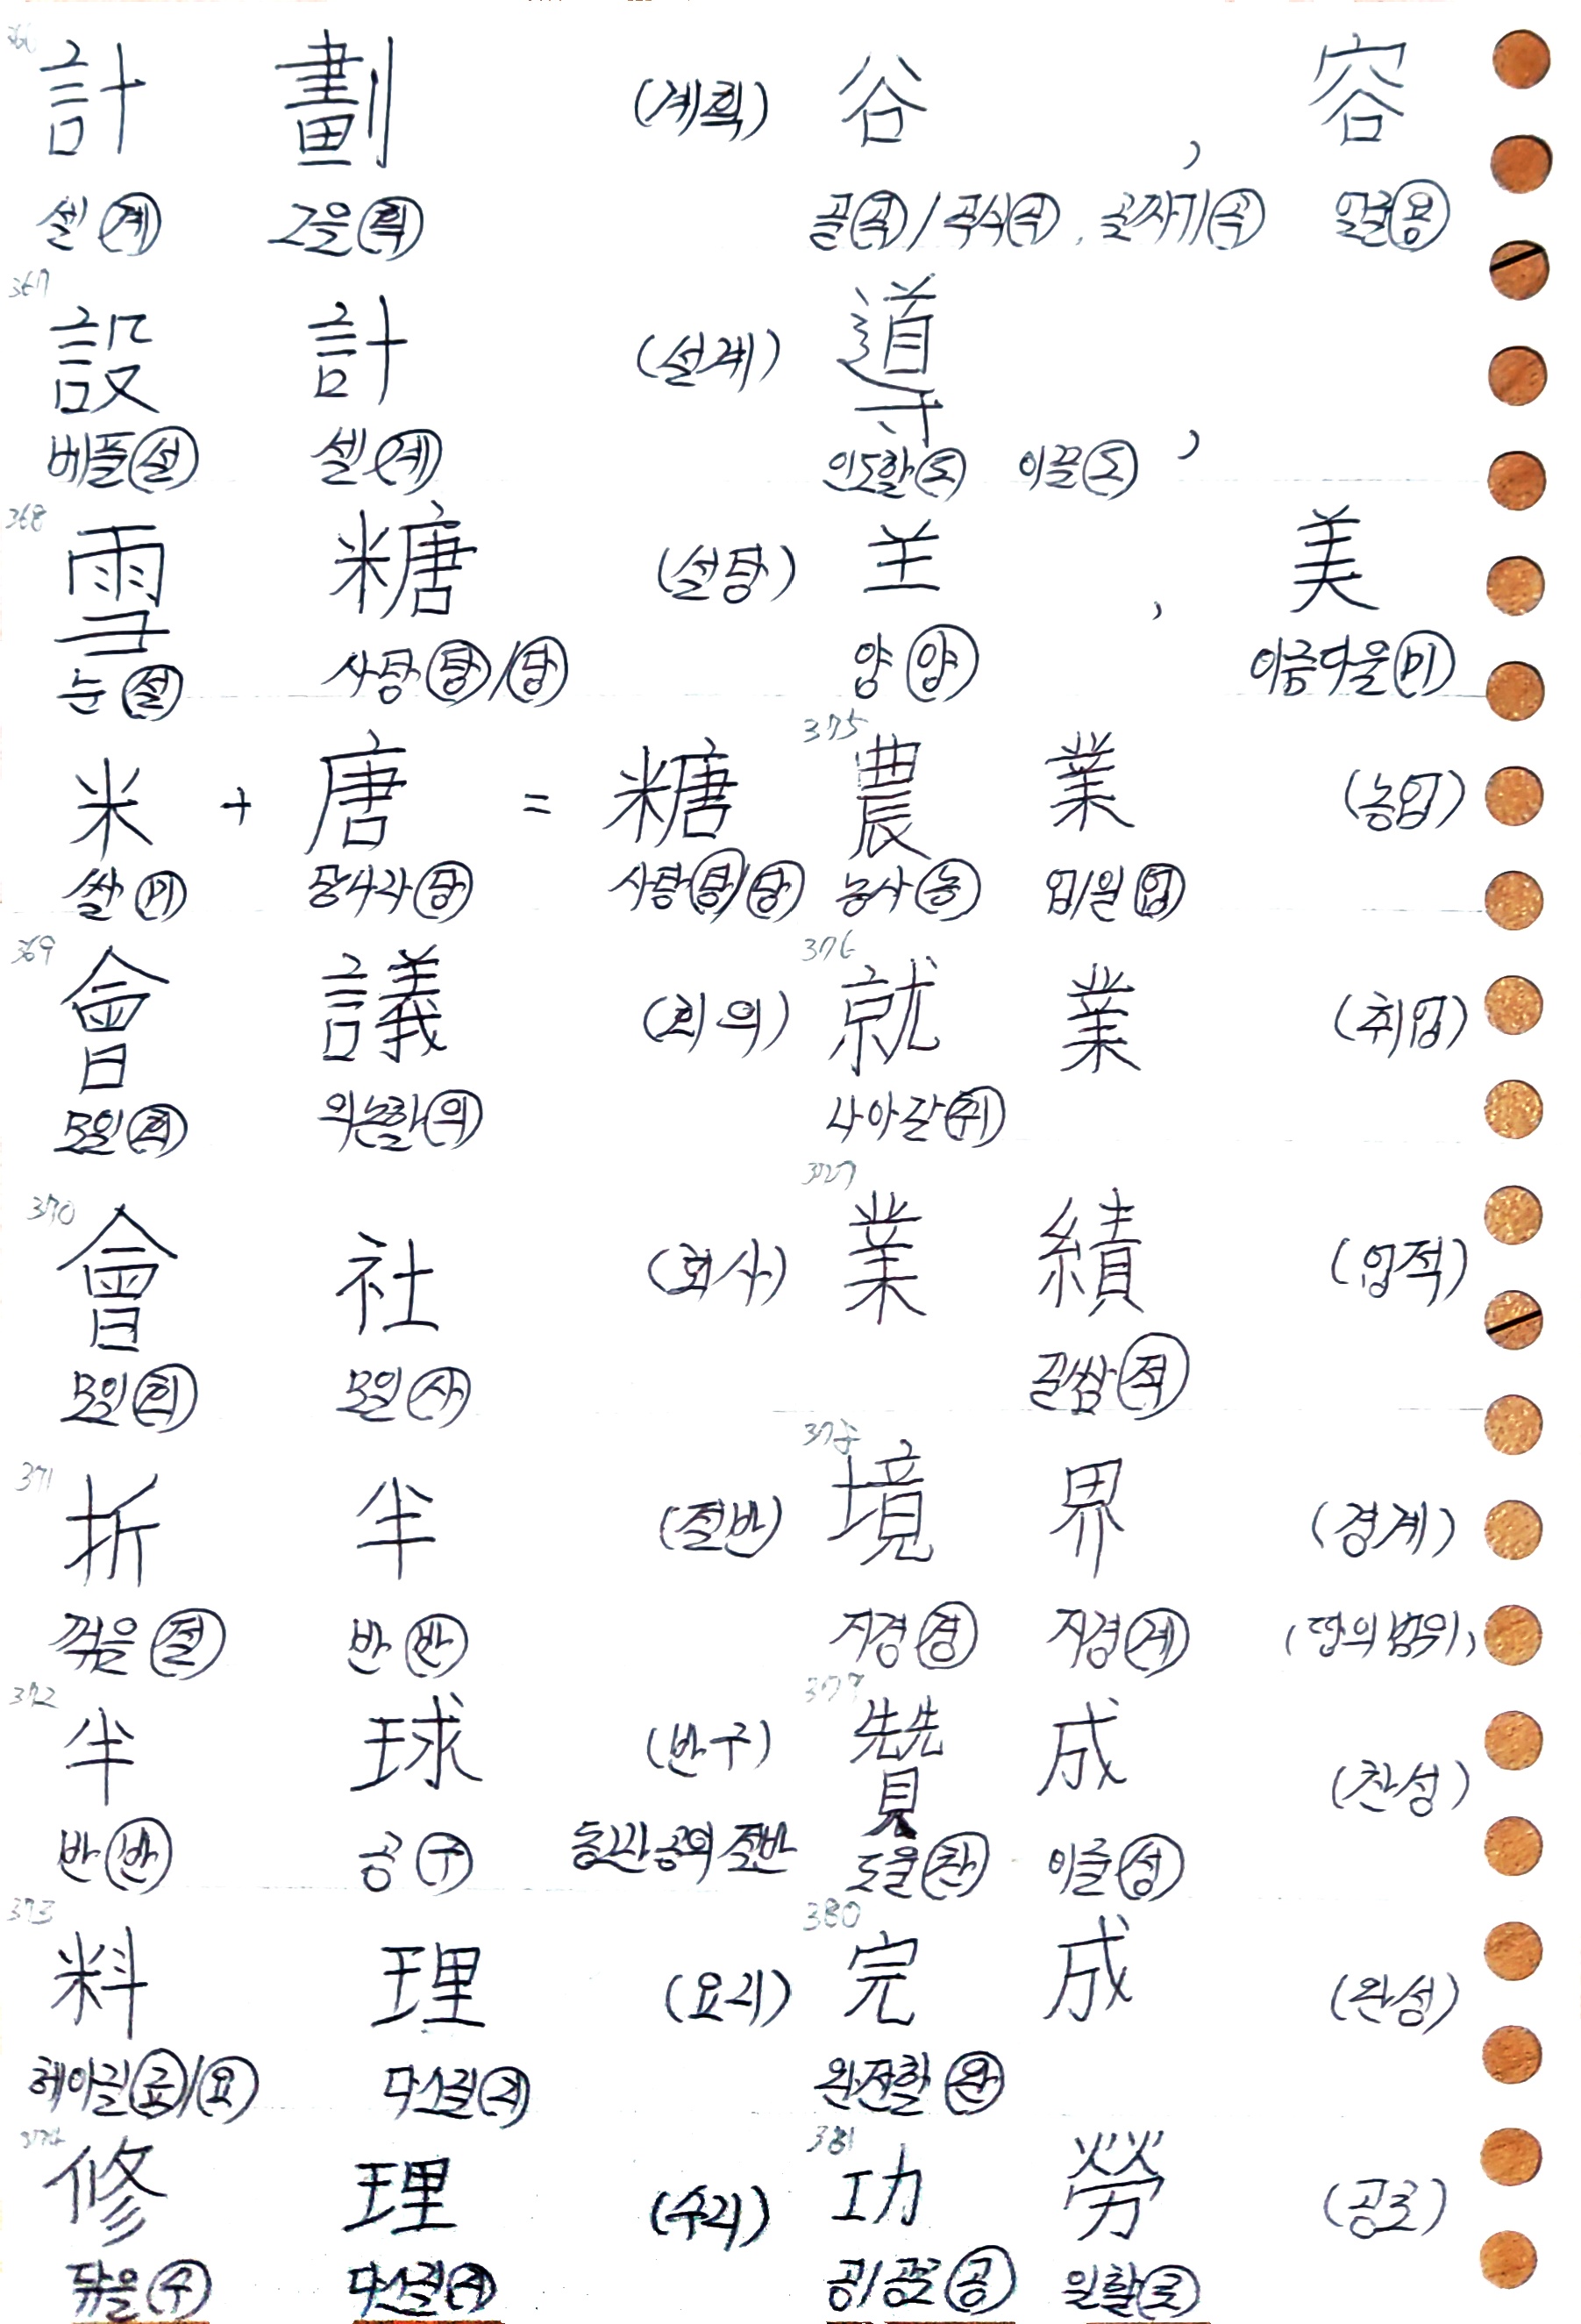 366
計 劃 (계획) 谷 , 容
셀(계) 그을(획) 골(곡)/곡식(곡), 골짜기(곡) 얼굴(용)
367
設 計 (설계) 導
베플(설) 셀(계) 인도할(도) 이끌(도) ,
368
雪 糖 (설탕) 羊 , 美
눈(설) 사탕(탕)/(당) 양(양) 아름다울(미)
375
米 + 唐 = 糖 農 業 (농업)
쌀(미) 당나라(당) 사탕(탕)/(당) 농사(농) 업/일(업)
369 376
會 議 (회의) 就 業 (취업)
모일(회) 의논할(의) 나아갈(취)
370 377
會 社 (회사) 業 績 (업적)
모일(회) 모일(사) 길쌈(적)
371 378
折 半 (절반) 境 界 (경계)
꺾을(절) 반(반) 지경(경) 지경(계) (땅의 범위)
372 379
半 球 (반구) 贊 成 (찬성)
반(반) 공(구) 둥근 공의 절반 도울(찬) 이룰(성)
373 380
料 理 (요리) 完 成 (완성)
헤아릴(료)/(요) 다스릴(리) 완전할(완)
374 381
修 理 (수리) 功 勞 (공로)
닦을(수) 다스릴(리) 공/공로(공) 일할(로)